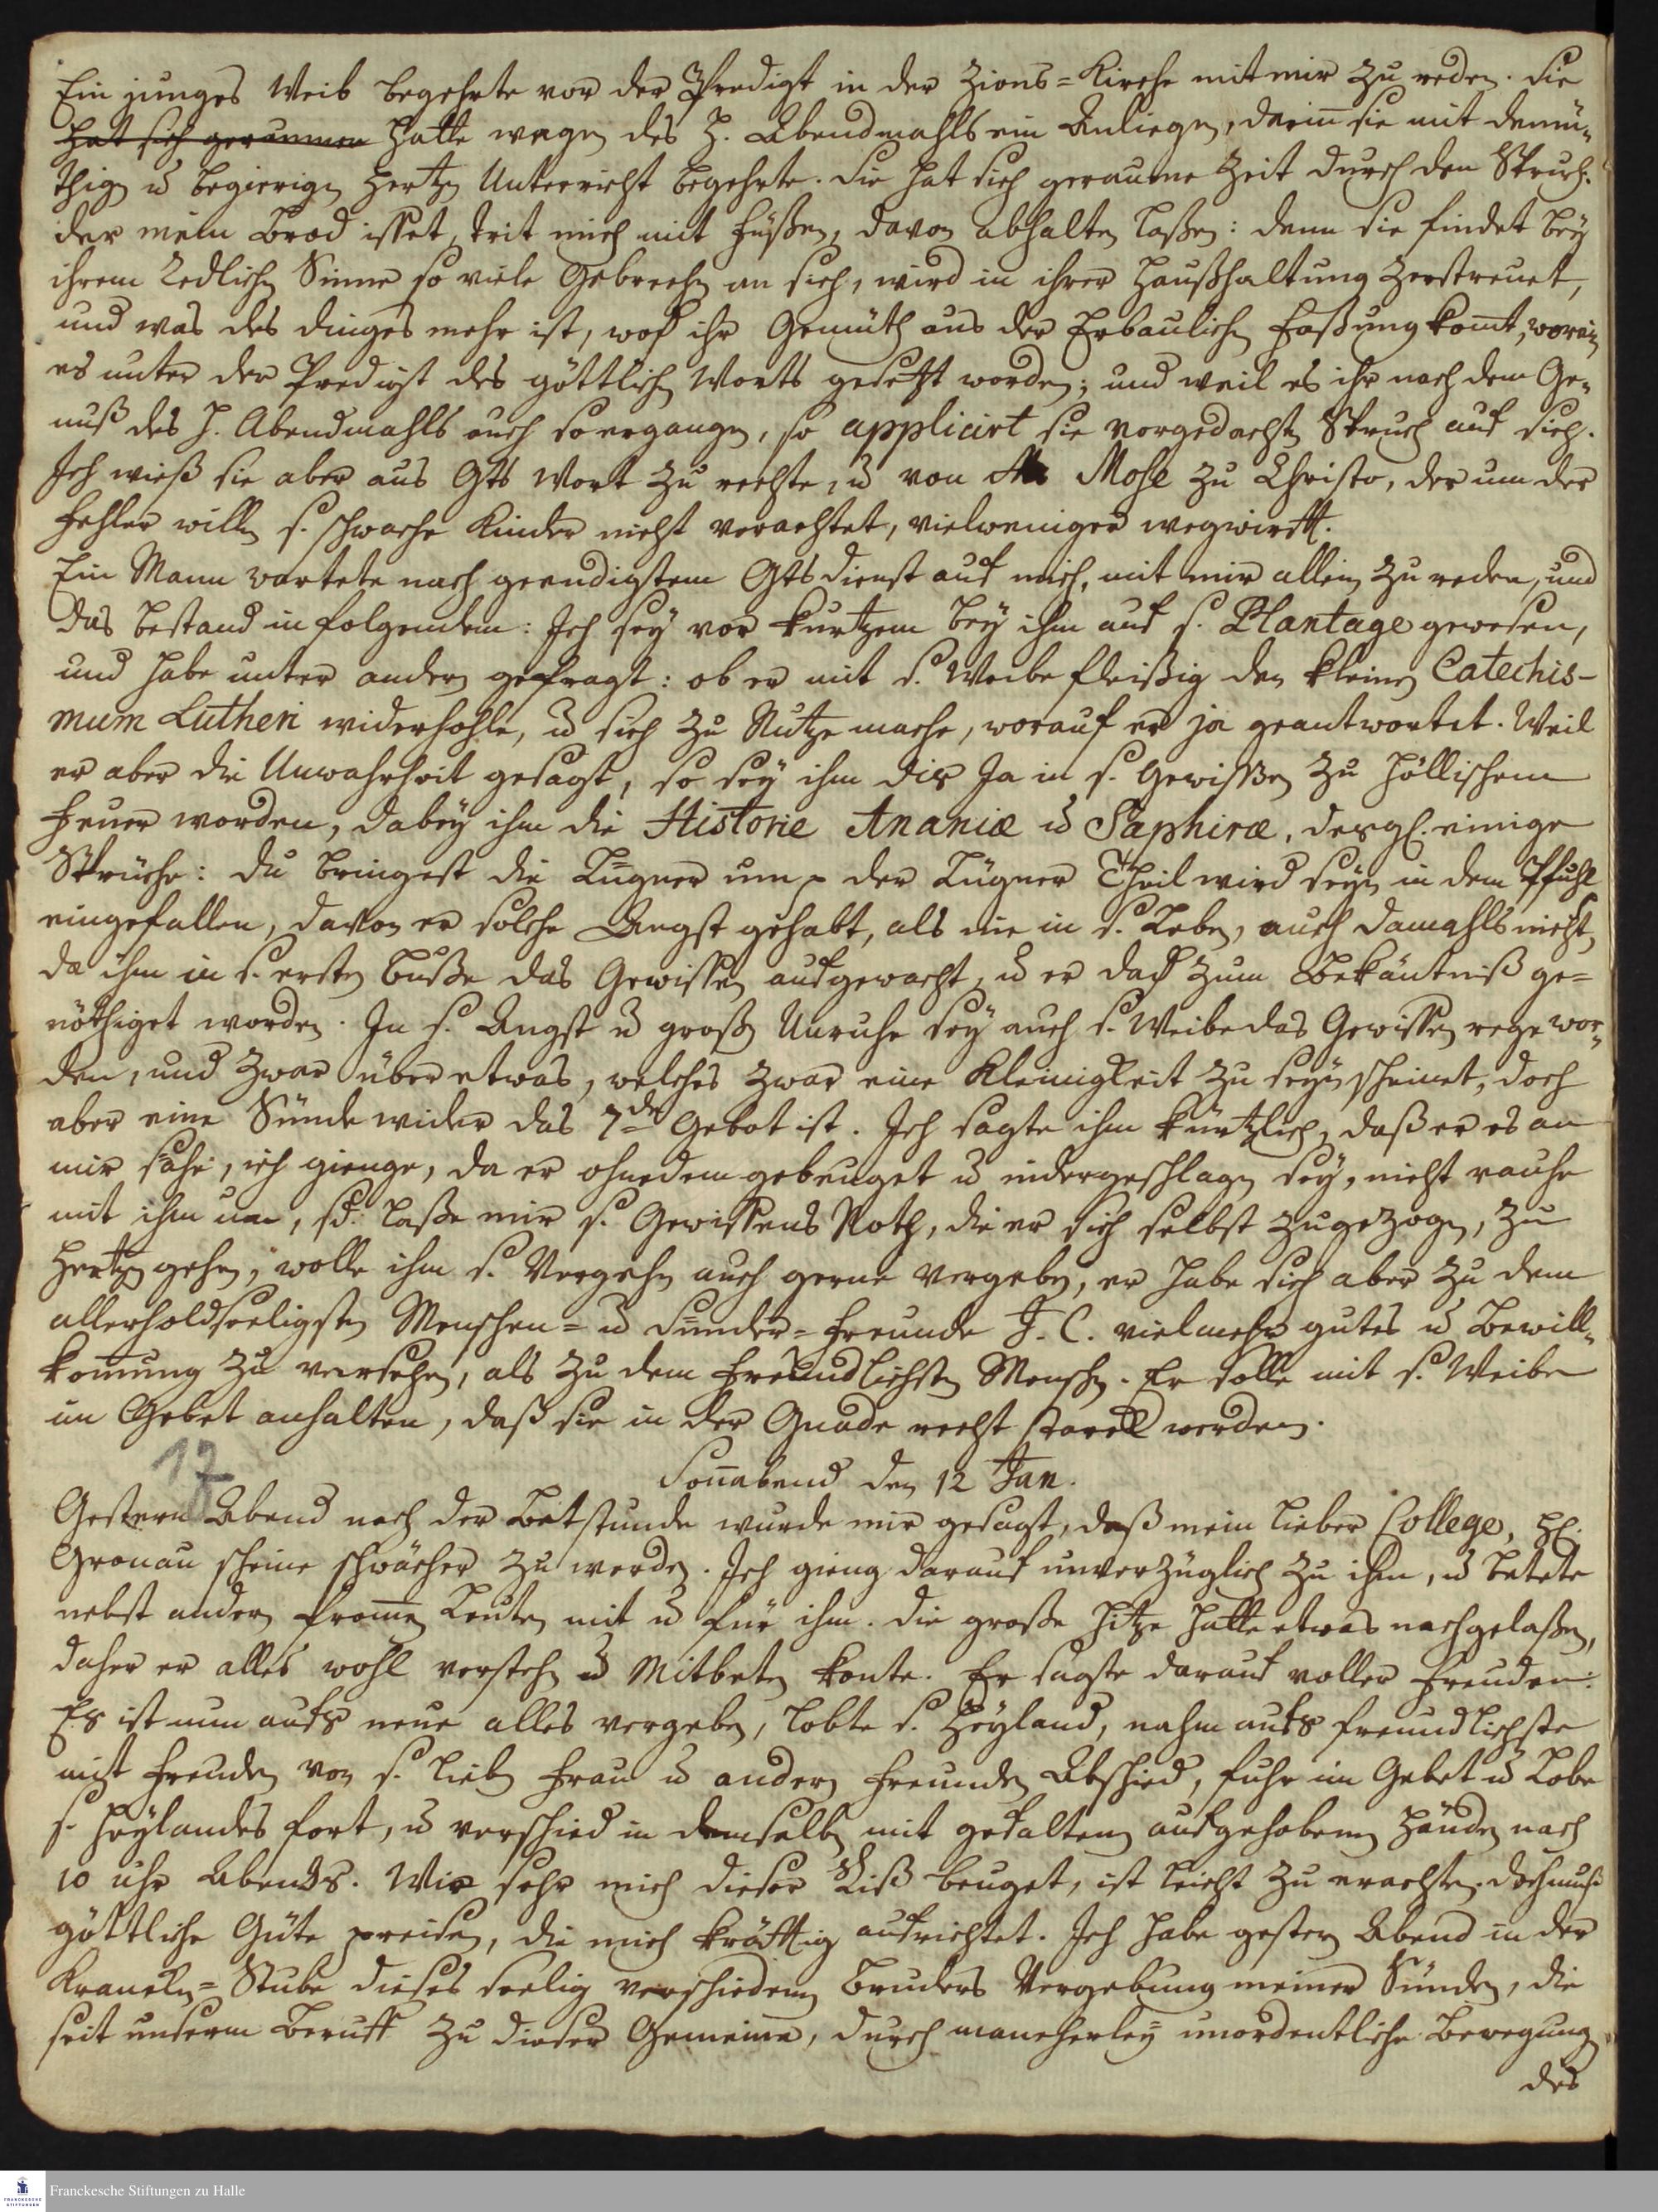 Ein junges Weib begehrte vor der Predigt in der Zions=Kirche mit mir zu reden. Sie
hat sich geraumen hatte wegen des H. Abendmahls ein Anliegen, darin̄ sie mit demü-
thigen u. begierigen Hertzen Unterricht begehrte. Sie hat sich geraume Zeit durch den Spruch:
der mein Brod isset, trit mich mit Füßen, davon abhalten laßen: denn sie findet bey
ihrem redlichen Sinne so viele Gebrechen an sich, wird in ihrer Haußhaltung zerstreuet,
und was des dinges mehr ist, wod. ihr Gemüth aus der Erbaulichen Faßung kom̄t, worein
es unter der Predigt des göttlichen Worts gesetzt worden; und weil es ihr nach dem Ge-
nuß des H. Abendmahls auch so ergangen, so applicirt sie vorgedachten Spruch auf sich.
Ich wieß sie aber aus Gottes Wort zu rechte, u. von Mose zu Christo, der um der
Fehler willen s. schwache Kinder nicht verachtet, vielweniger wegwirfft.
Ein Mann wartete nach geendigtem Gottesdienst auf mich, mit mir allein zu reden, und
das bestand in folgendem: Ich sey vor kurtzem bey ihm auf s. Plantage gewesen,
und habe unter andern gefragt: ob er mit s. Weibe fleißig den kleinen Catechis-
mum Lutheri widerhohle, u. sich zu Nutze mache, worauf er ja geantwortet. Weil
er aber die Unwahrheit gesagt, so sey ihm dis Ja in s. Gewißen zu höllischem
Feuer worden, dabey ihm die Historie Ananiæ u. Saphiræ, desgl. einige
Sprüche: du bringest die Lügner um p der Lügner Theil wird seyn in dem Pfuhl
eingefallen, davon er solche Angst gehabt, als nie in s. Leben, auch damahls nicht,
da ihm in s. ersten Buße das Gewissen aufgewacht, u. er dad. zum Bekäntniß ge=
nöthiget worden. In s. Angst u. großen Unruhe sey auch s. Weibe das Gewissen rege wor-
den, und zwar über etwas, welches zwar eine Kleinigkeit zu seyn scheinet, doch
aber eine Sünde wider das 7de Gebot ist. Ich sagte ihm kürtzlich, daß er es an
mir sähe, ich gienge, da er ohnedem gebeuget u. nidergeschlagen sey, nicht rauhe
mit ihm um, sd. laße mir s. Gewissens Noth, die er sich selbst zugezogen, zu
Hertzen gehen, wolle ihm s. Vergehen auch gerne vergeben, er habe sich aber zu dem
allerholdseeligsten Menschen= u. Sünder=Freunde J. C. vielmehr gutes u. Bewill-
kom̄ung zu versehen, als zu dem freundlichsten Menschen. Er solle mit s. Weibe
im Gebet anhalten, daß sie in der Gnade recht starck werden.
17
Son̄abend den 12 Jan.
Gestern Abend nach der Betstunde wurde mir gesagt, daß mein lieber College, H.
Gronau scheine schwächer zu werden. Ich gieng darauf unverzüglich zu ihm, u. betete
nebst andern from̄en Leuten mit u. für ihm. Die große Hitze hatte etwas nachgelaßen,
daher er alles wohl verstehen u. Mitbeten konte. Er sagte darauf voller Freuden:
Es ist nun aufs neue alles vergeben, lobte s. Heyland, nahm aufs freundlichste
mit Freuden von s. lieben Frau u. andern Freunden Abschied, fuhr im Gebet u. Lobe
s. Heylandes fort, u. verschied in demselben mit gefaltenen aufgehobenen Händen nach
10 uhr Abends. Wie sehr mich dieser Riß beuget, ist leicht zu erachten. doch muß
göttliche Güte preisen, die mich kräfftig aufrichtet. Ich habe gestern Abend in der
Krancken=Stube dieses seelig verschiedenen Bruders Vergebung meiner Sünden, die
seit unserm Beruff zu dieser Gemeine, durch mancherley unordentliche Bewegung
des
Franckesche Stiftungen zu Halle
FRANCKESCHE STIFTUNGEN